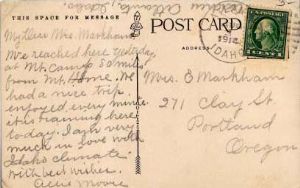 THIS SPACE FOR MESSAGE
POST CARD
My Dear Mrs. Markham
We reached here yesterday
at Mt. Camp 50 miles
from Mt. Home. We
had a nice trip
enjoyed every minute
it is raining here
today. I am very
much in love with
Idaho climate
with best wishes.
Moore
Atlanta, Idaho,
1912
IDAHO
Mrs. E Markham
271 Clay St.
Portland
Oregon